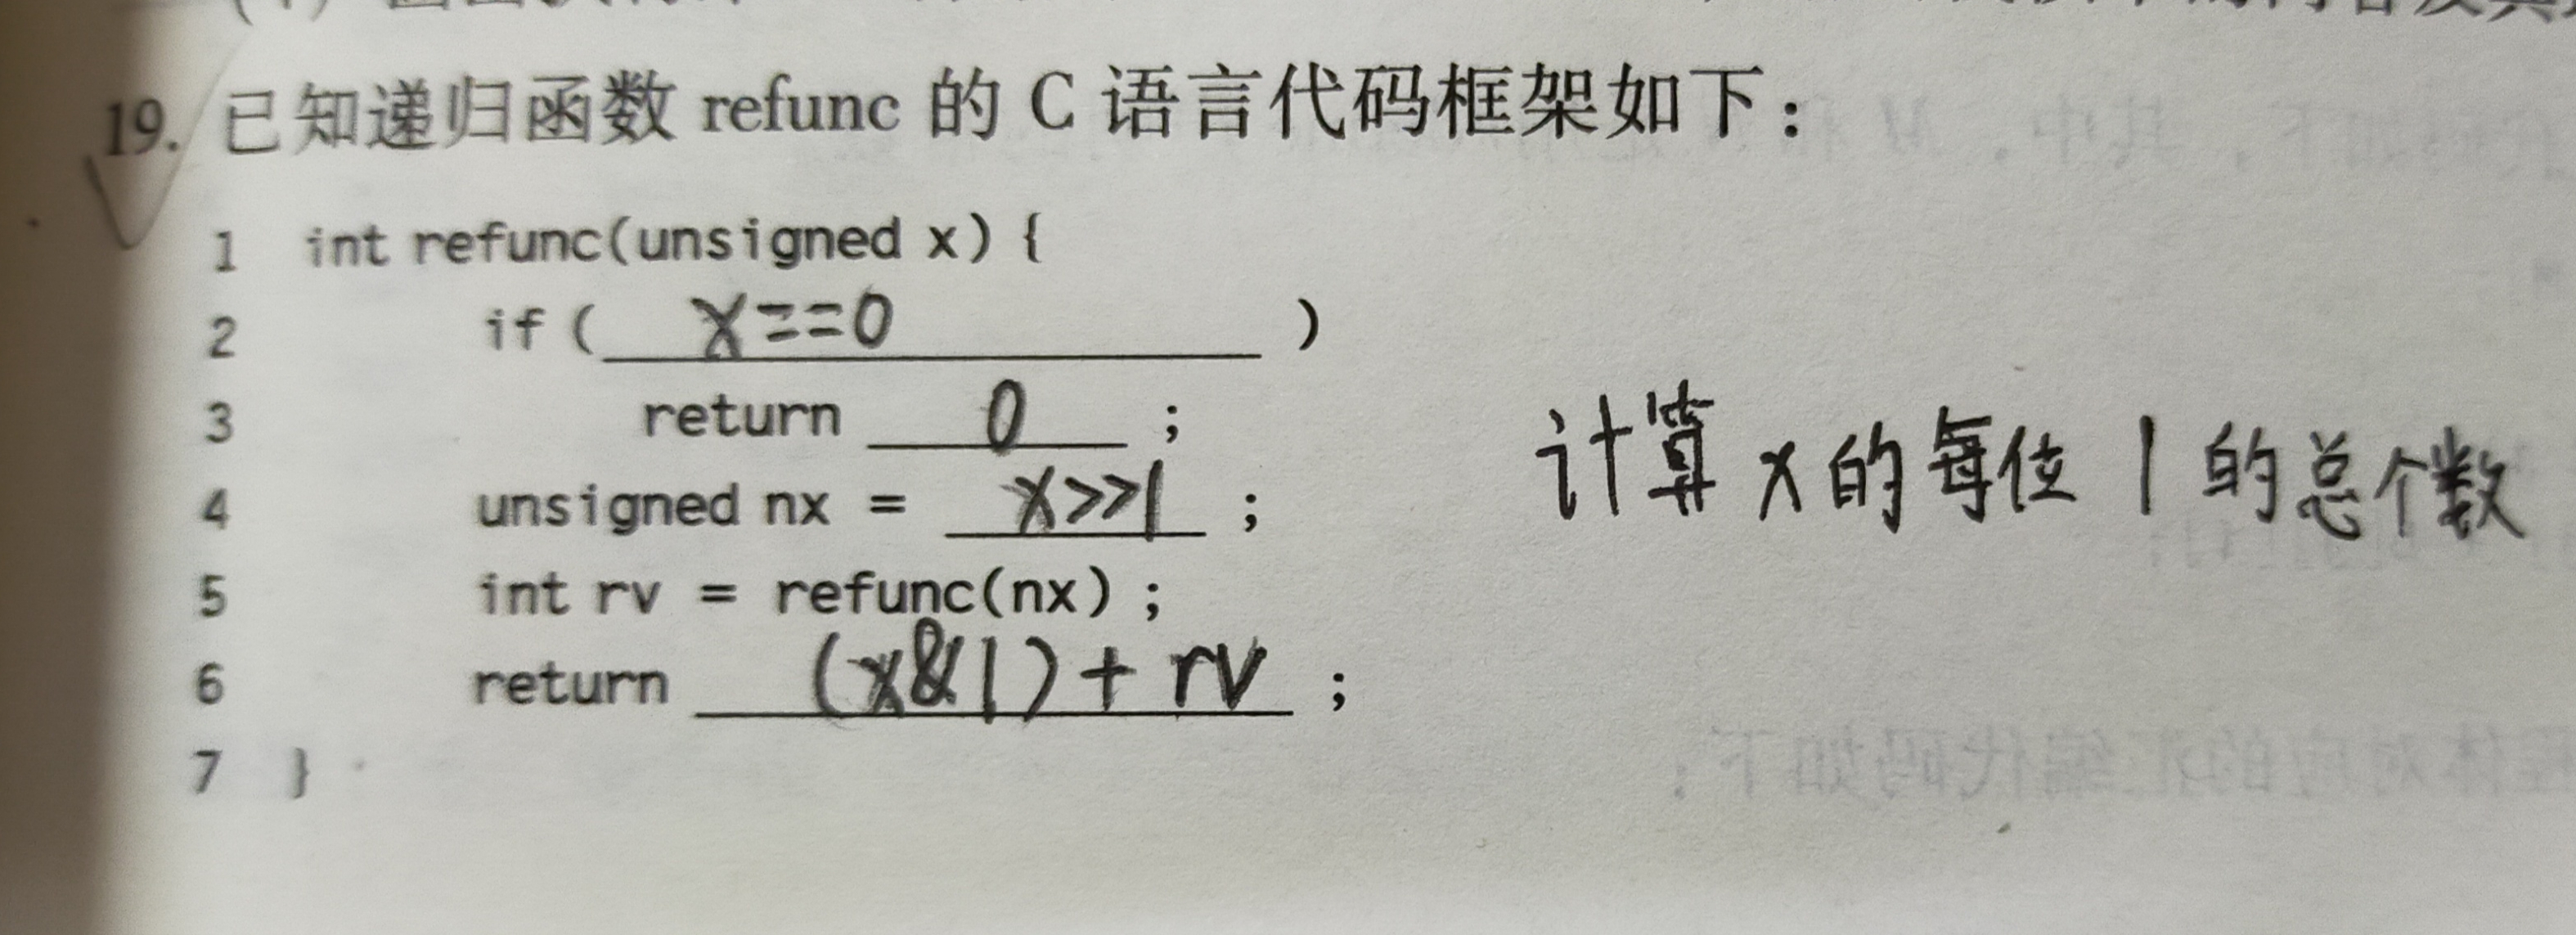 19. 已知递归函数 refunc 的 C 语言代码框架如下：
1 int refunc(unsigned x) {
2 if ( x==0 )
3 return 0 ;
4 unsigned nx = x>>1 ;
5 int rv = refunc(nx) ;
6 return (x&1) + rv ;
7 }
计算 x 的每位 1 的总个数